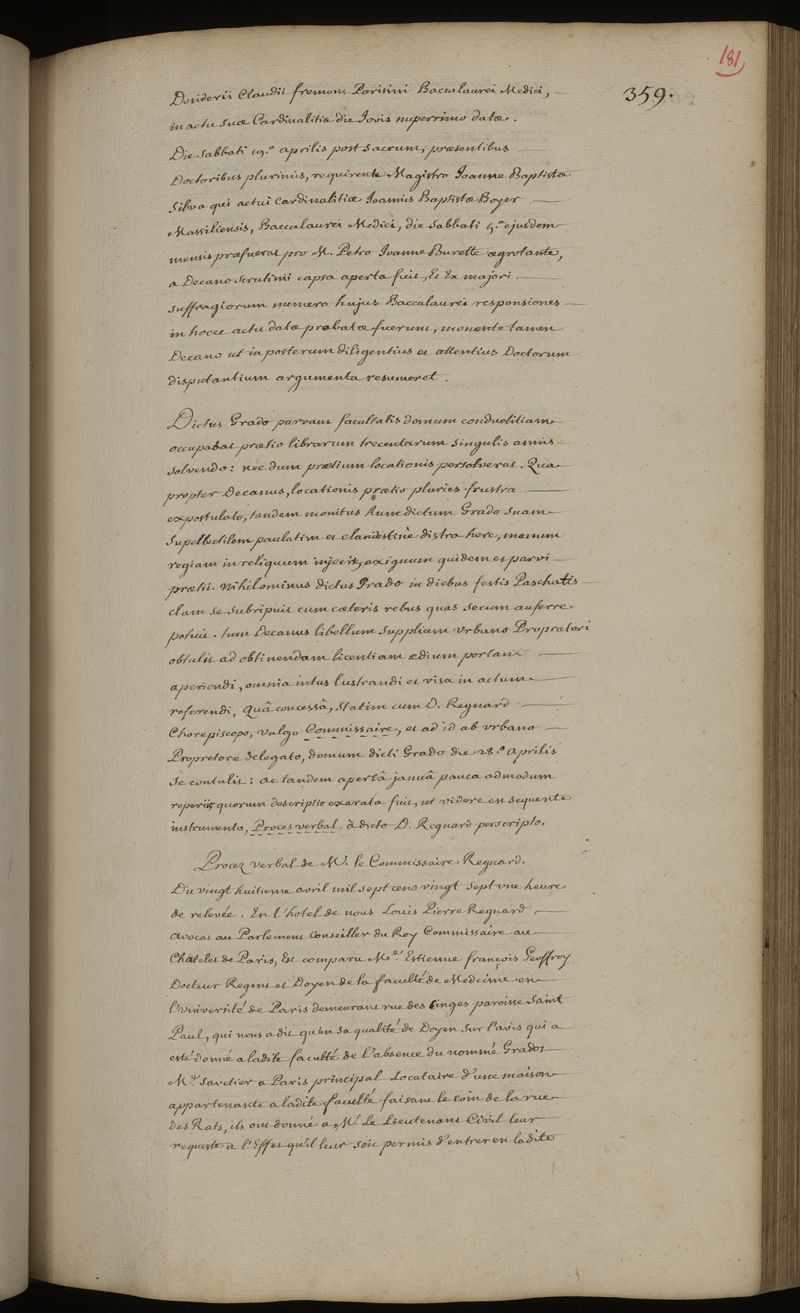 181
359.
Desiderii Claudii fremont Parisini Baccalaurei Medici,
in actu suæ Cardinalitiæ die Jovis nuperrimo datæ.
Die Sabbati 19.ª aprilis post Sacrum, præsentibus
Doctoribus plurimis, requirente Magistro Joanne Baptista
Silva qui actui Cardinalitiæ Joannis Baptistæ Boyer
Massiliensis, Baccalaurei Medici, die Sabbati 5.ª ejusdem
mensis præfuerat pro M. Petro Joanne Burette ægrotante,
a Decano Scrutinii capsa aperta fuit, Et Ex majori
suffragiorum numero hujus Baccalaurei responsiones
in hocce actu datæ probatæ fuerunt, monente tamen
Decano ut in posterum diligentius et attentius Doctorum
disputantium argumenta resumeret.
Dictus Grado parvam facultatis domum conductitiam
occupabat prætio librarum trecentarum Singulis annis
Solvendo: nec dum prætium locationis persolverat. Qua
propter Decanus, locationis prætio pluries frustra
expostulato, tandem monitus hunc dictum Grado Suam
Supellectilem paulatim et clandestinè distrahere, manum
regiam in reliquum injecit, exiguum quidem et parvi
prætii. Nihilominus dictus Grado in diebus festis Paschatis
clam se subripuit cum cæteris rebus quas secum auferre
potuit. tum Decanus libellum Supplicem Urbano Proprætori
obtulit ad obtinendam licentiam ædium portam
aperiendi, omnia intus lustrandi et visa in actum
referendi, Quâ concessâ, Statim cum D. Regnard
Chorepiscopo, vulgo Commissaire, et ad id ab urbano
Proprætore delegato, domum dicti Grado die 28.ª aprilis
se contulit: ac tandem apertâ januâ pauca admodum
reperiit quorum descriptio exarata fuit, ut videre est sequente
instrumento, Proces verbal, à dicto D. Regnard perscripto.
Procez verbal de M. le Commissaire Regnard.
Du vingt huitieme avril mil sept cens vingt sept une heure
de relevée. En l'hotel de nous Louis Pierre Regnard
avocat au Parlement Conseiller du Roy Commissaire au
Châtelet de Paris, Est comparu M.e Estienne françois Geoffroy
Docteur Regent et Doyen de la faculté de Medecine en
l'université de Paris demeurant rue des Singes paroisse Saint
Paul, qui nous a dit qu'en sa qualité de Doyen sur l'avis qui a
esté donné a ladite faculté de l'absence du nommé Grados
M.e Savetier a Paris principal Locataire d'une maison
appartenante a ladite faculté faisant le coin de la rue
des Rats, ils ont donné a M. Le Lieutenant Civil leur
requeste a l'Effet qu'il leur soit permis d'entrer en ladite